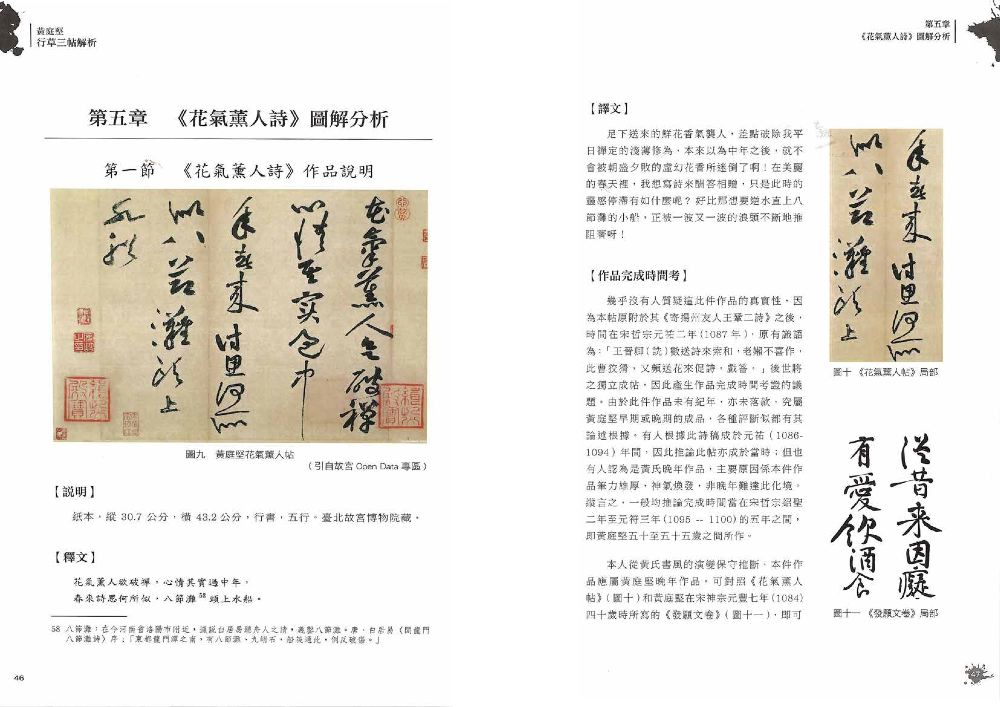 黃庭堅
行草三帖解析
第五章　《花氣薰人詩》圖解分析
第一節　《花氣薰人詩》作品說明
花氣薰人欲破禪
心情其實過中
年春來詩思何所
似八節灘頭上
水船
圖九　黃庭堅花氣薰人帖
（引自故宮 Open Data 專區）
【說明】
紙本，縱 30.7 公分，橫 43.2 公分，行書，五行。臺北故宮博物院藏。
【釋文】
花氣薰人欲破禪，心情其實過中年。
春來詩思何所似，八節灘58 頭上水船。
58 八節灘：在今河南省洛陽市附近，
八節灘詩》序：「東都龍門潭之南，有八節灘、九峭石，船筏過此，例反破傷。」
46
第五章
《花氣薰人詩》圖解分析
【譯文】
足下送來的鮮花香氣襲人，差點破除我平
日禪定的淺薄修為。本來以為中年之後，就不
會被朝盛夕敗的虛幻花香所迷倒了啊！在美麗
的春天裡，我想寫詩來酬答相贈，只是此時的
靈感停滯有如什麼呢？好比那想要逆水直上八
節灘的小船，正被一波又一波的浪頭不斷地推
阻著呀！
年春來詩思何所
似八節灘頭上
圖十 《花氣薰人帖》局部
【作品完成時間考】
幾乎沒有人質疑這此件作品的真實性。因
為本帖原附於其《寄揚州友人王鞏二詩》之後，
時間在宋哲宗元祐二年(1087 年)，原有識語
為：「王晉卿(詵)數送詩來索和，老懶不喜作，
此曹狡猾，又頻送花來促詩，戲答。」後世將
之獨立成帖，因此產生作品完成時間考證的議
題。由於此件作品未有紀年，亦未落款，究屬
黃庭堅早期或晚期的成品，各種評斷似都有其
論述根據。有人根據此詩稿成於元祐（1086-
1094）年間，因此推論此帖亦成於當時；但也
有人認為是黃氏晚年作品，主要原因係本件作
品筆力雄厚，神氣煥發，非晚年難達此化境。
縱言之，一般均推論完成時間當在宋哲宗紹聖
二年至元符三年(1095 -- 1100)的五年之間，
即黃庭堅五十至五十五歲之間所作。
本人從黃氏書風的演變保守推斷，本件作
品應屬黃庭堅晚年作品。可對照《花氣薰人
帖》(圖十)和黃庭堅在宋神宗元豐七年(1084)
四十歲時所寫的《發願文卷》(圖十一)，即可
從昔來因癡
有愛飲酒食
圖十一 《發願文卷》局部
47